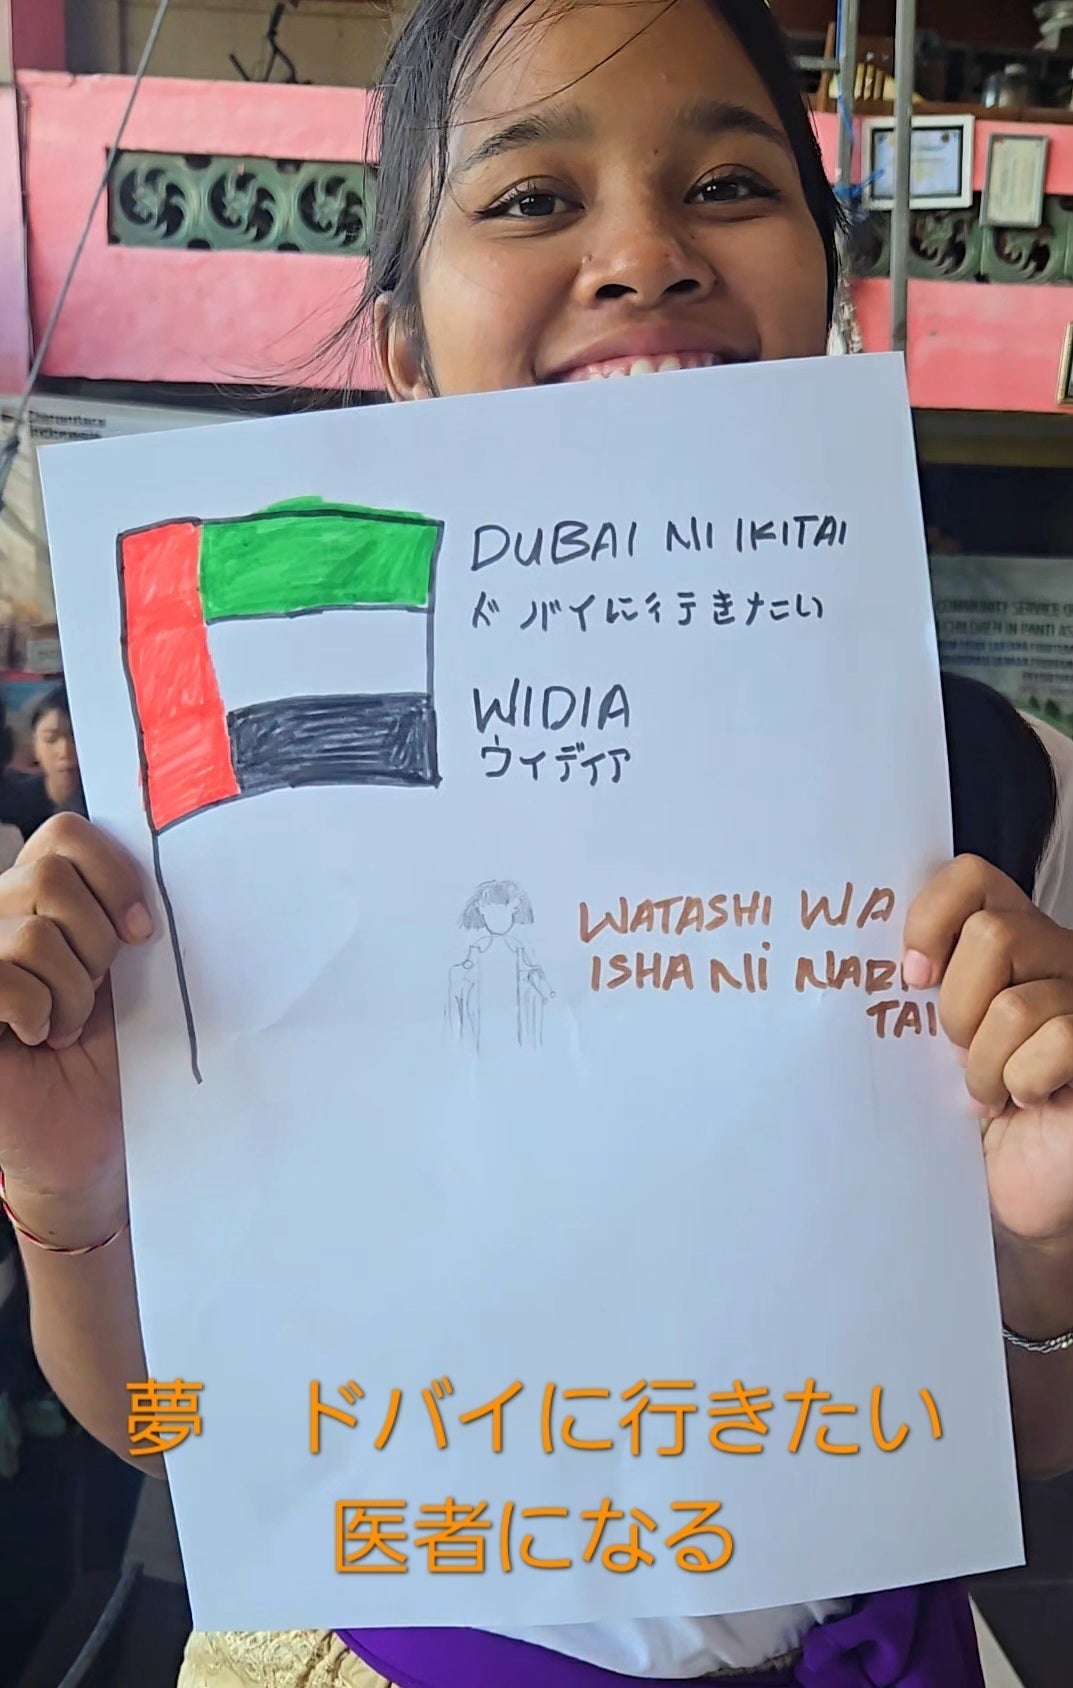 DUBAI NI IKITAI
ドバイに行きたい
WIDIA
ウィディア
WATASHI WA
ISHA NI NARI
TAI
COMMUNITY SERVICE
CHILDREN IN PANTI
夢 ドバイに行きたい
医者になる